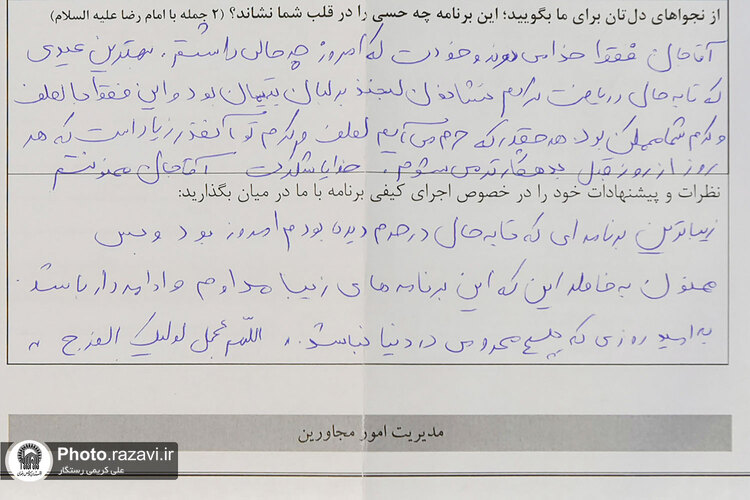 از نجواهای دل‌تان برای ما بگویید؛ این برنامه چه حسی را در قلب شما نشاند؟ (۲ جمله با امام رضا علیه السلام)
آقاجان فقط خدا می‌دونه و خودت که امروز چه حالی داشتم. بهترین عیدی
که تا به حال دریافت کردم نشاندن لبخند بر لبان یتیمان بود و این فقط با لطف
و کرم شما ممکن بود. هر چقدر که حرم می‌آیم لطف و کرم تو آنقدر زیاد است که هر
روز از روز قبل بدهکارتر می‌شوم. خدایا شکرت آقاجان ممنونتم
نظرات و پیشنهادات خود را در خصوص اجرای کیفی برنامه با ما در میان بگذارید:
زیباترین برنامه‌ای که تا به حال در حرم دیده بودم امروز بود و بس
ممنون به خاطر این که این برنامه های زیبا مداوم و ادامه دار باشد.
به امید روزی که هیچ محرومی در دنیا نباشد. اللهم عجل لولیک الفرج
مدیریت امور مجاورین
Photo.razavi.ir
علی کریمی رستگار